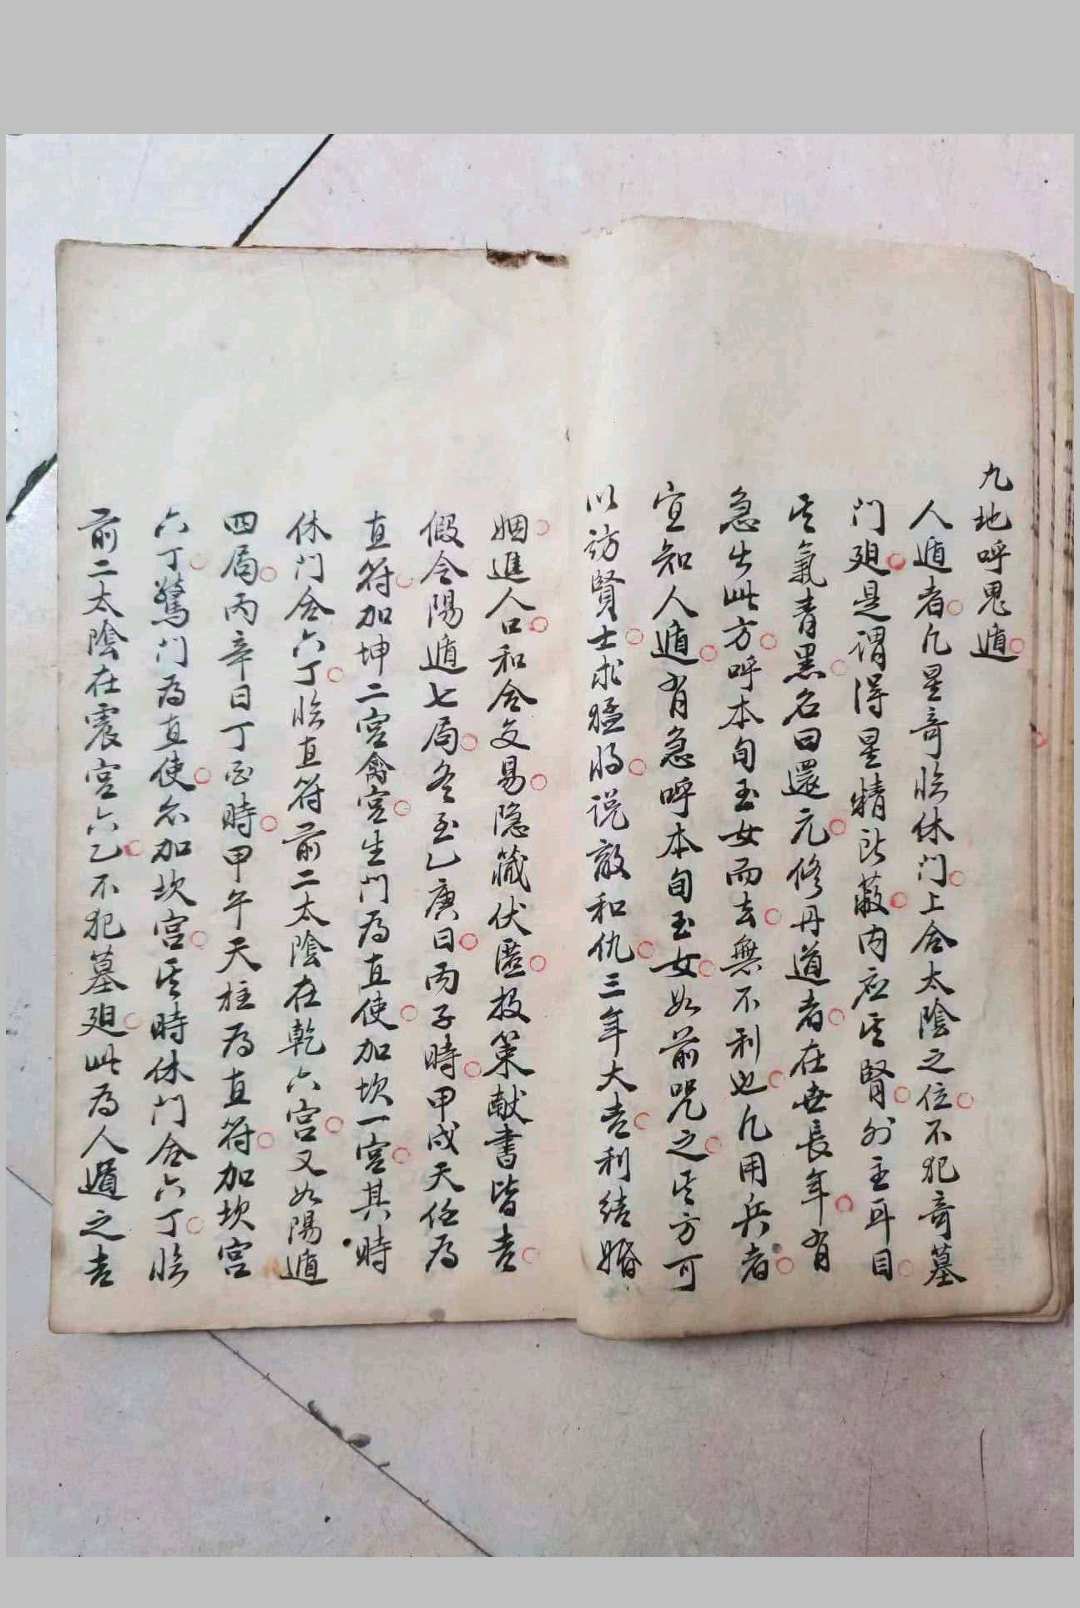 九地呼鬼遁
人遁者凡星奇臨休门上合太陰之位不犯奇墓
门廹是谓得星精所蔽内应其腎外主耳目
其氣青黑名曰還元修丹道者在世長年有
急出此方呼本旬玉女而去無不利也凡用兵者
宜知人遁有急呼本旬玉女如前咒之其方可
以訪賢士求猛將说敵和仇三年大吉利结婚
姻進人口和合交易隐藏伏匿投策献書皆吉
假令陽遁七局冬至乙庚日丙子時甲戌天任為
直符加坤二宫禽宫生门為直使加坎一宫其時
休门合六丁臨直符前二太陰在乾六宫又如陽遁
四局丙辛日丁酉時甲午天柱為直符加坎宫
六丁驚门為直使亦加坎宫其時休门合六丁臨
前二太陰在震宫六乙不犯墓廹此為人遁之吉